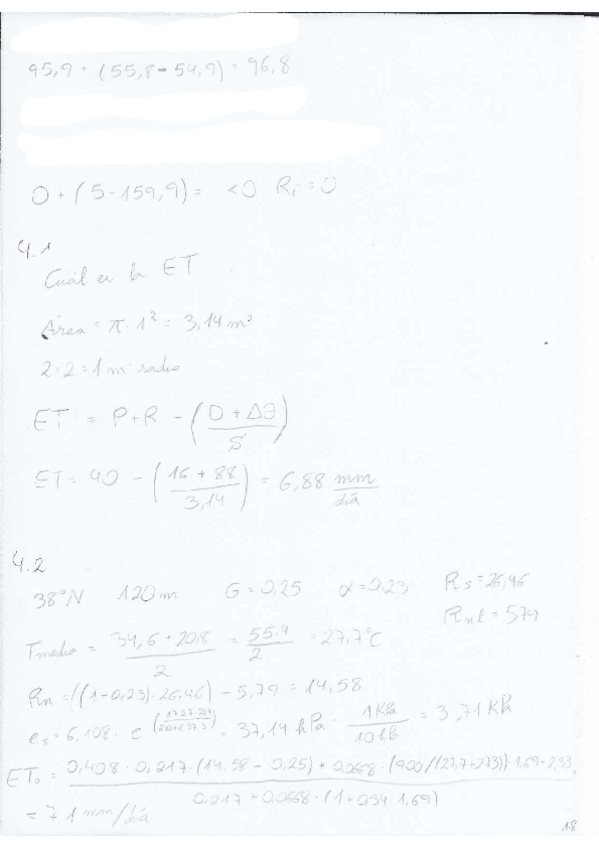 95,9 + (55,8 - 54,9) = 96,8
0 + (5 - 159,9) = <0 Ri = 0
4.1
Cuál es la ET
Área = π · 1² = 3,14 m²
2 : 2 = 1 m radio
ET = P+R - ((D + Δθ)/S)
ET = 40 - ((16 + 88)/3,14) = 6,88 mm/día
4.2
38°N 120 m G = 0,25 α = 0,23 Rs = 26,46
Rnl = 579
Tmedia = (34,6 + 20,8)/2 = 55,4/2 = 27,7°C
Rn = ((1-0,23) · 26,46) - 5,79 = 14,58
es = 6,108 · e = 37,14 hPa · 1 KPa / = 3,71 KPa
ETo = (0,408 · 0,217 · (14.58 - 0,25) + 0,0668 · (900/(27,7+273)) · 1,69 · 2,33)/(0,217 + 0,0668 · (1 + 0,34 · 1,69))
= 7,1 mm/día
18